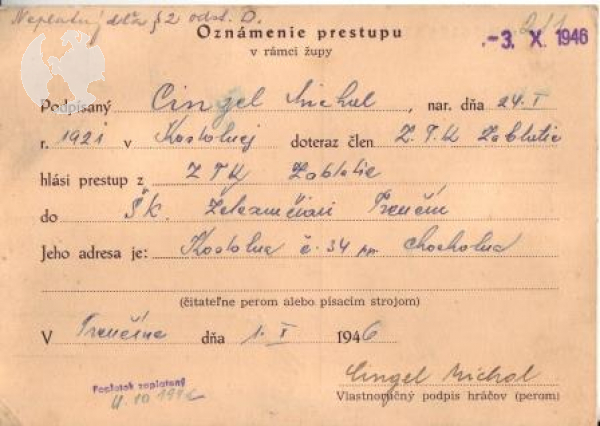 Neplatný dľa § 2 odst. D.
2/1
Oznámenie prestupu
v rámci župy
-3. X. 1946
Podpísaný Cingel Michal, nar. dňa 24.I
r. 1921 v Kostolnej doteraz člen Z.T.K Zablatie
hlási prestup z ZTK Zablatie
do ŠK. Železničiari Trenčín
Jeho adresa je: Kostolna č. 34 pp. Chocholna
(čitateľne perom alebo písacím strojom)
V Trenčíne dňa 1. X 1946
Poplatok zaplatený
4.10 1946
Cingel Michal
Vlastnoručný podpis hráčov (perom)